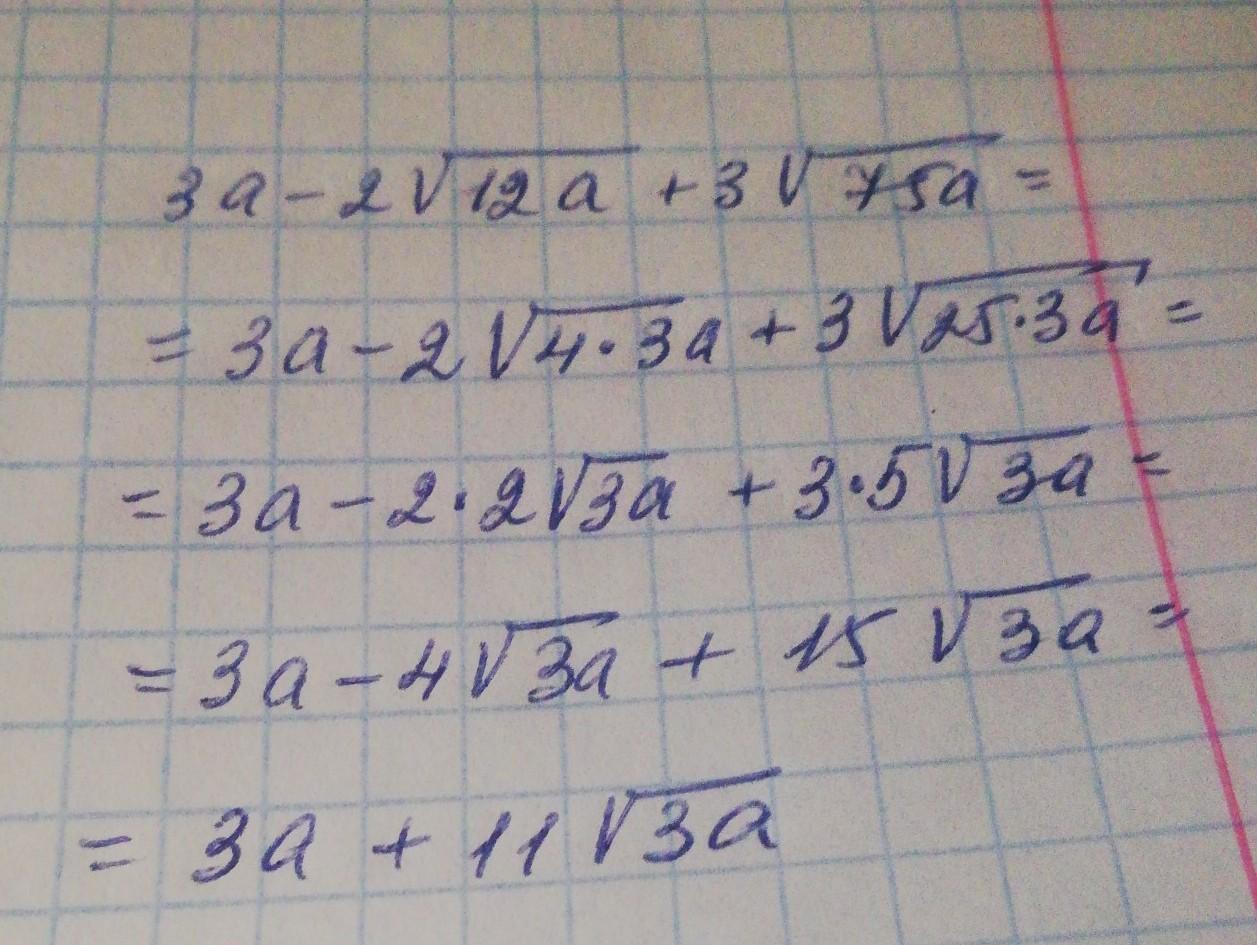 3a-2√12a +3√75a =
= 3a-2√4·3a+3√25·3a =
= 3a-2·2√3a +3·5√3a =
= 3a-4√3a + 15√3a =
= 3a + 11√3a